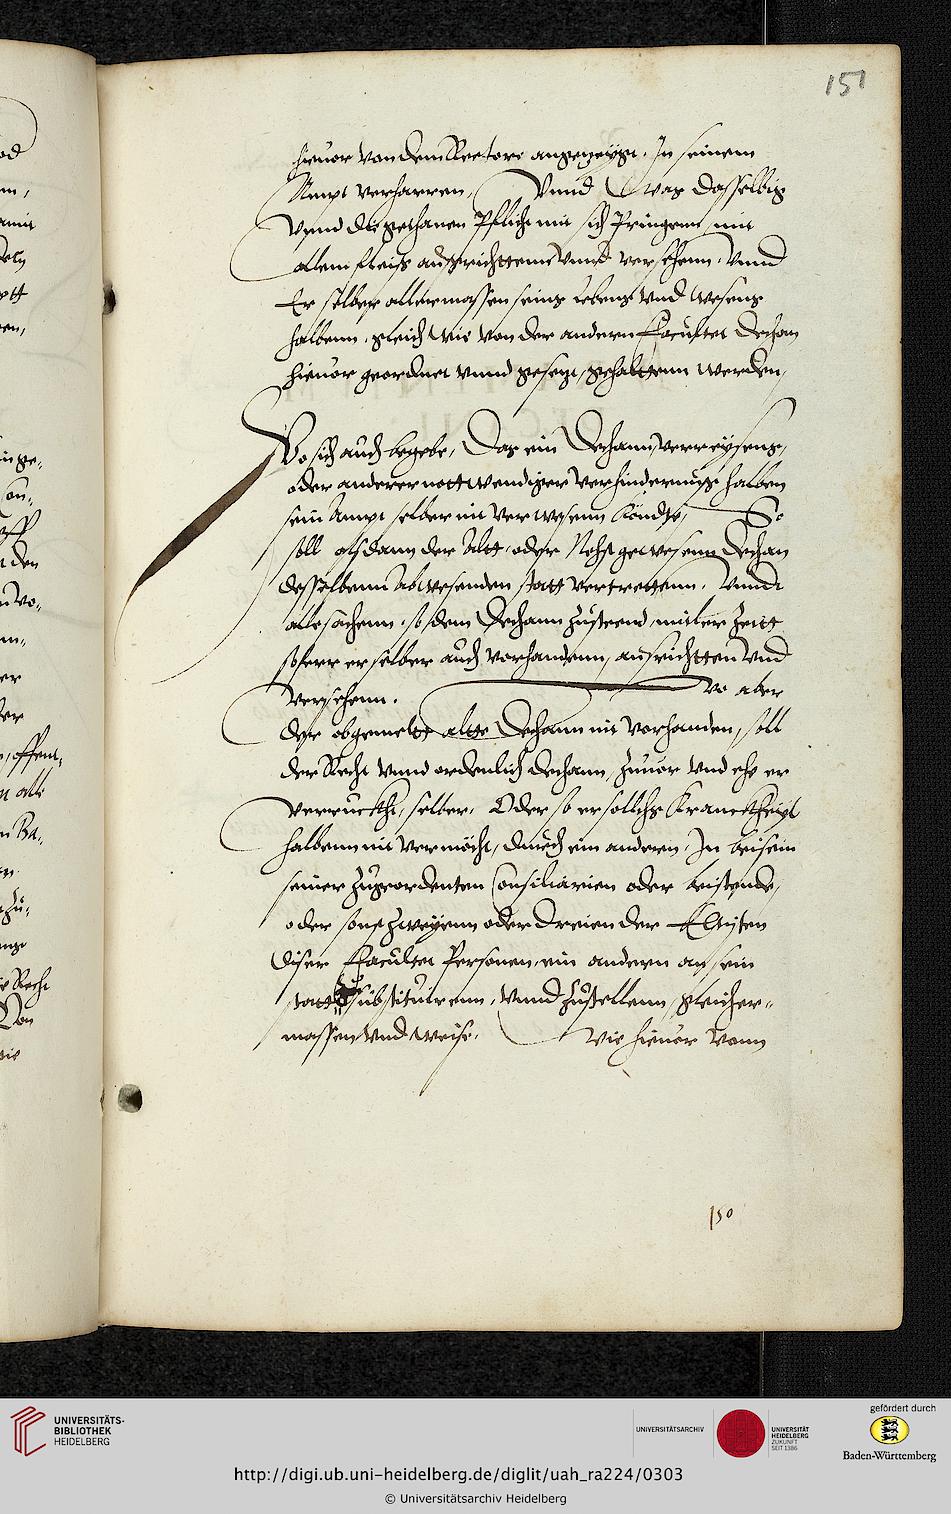 151
hieuor von dem Rectore angezeigt. In seinem
Ampt verharren, Vnnd Was dasselbig
Vnnd die gethanen Pflicht mit sich Pringenn, mit
allem fleiss ausrichttenn Vnnd versehenn. Vnnd
Er selber allermassen seins lebens Vnd Wesens
halbenn, gleich Wie Von der anderen Facultet Dechan
hieuor geordnet Vnnd gesetzt, gehalttenn werden,
Wo sich auch begebe, Das ein Dechann, verreysens,
oder anderer nottwendiger Verhindernuss halben
sein Ampt selber nit Verwesenn köndte, So
soll alsdann der Altt, oder Nehst gewesenn Dechan
desselbenn Abwesenden statt Vertrettenn. Vnnd
alle sachenn, so dem Dechann Zusteend, mitler Zeitt
soferr er selber auch Vorhandenn, ausrichtten Vnd
Versehenn. Wo aber
der obgemelte altte Dechann nit Vorhanden, soll
der Recht Vnnd ordenlich Dechann, Zuuor Vnd ehe er
Verruckht, selber, Oder so er sollchs Kranckheyt
halbenn nit Vermöcht, durch ein anderen, In beisein
seiner Zugeordenten Consiliarien oder beistende,
oder sonst Zweyenn oder Dreien der Eltisten
diser Facultet Personen, ein andern an sein
statt substituirenn, Vnnd Zustellenn, gleicher-
massen Vnd Weise, Wie hieuor Vonn
150
UNIVERSITÄTS-
BIBLIOTHEK
HEIDELBERG
UNIVERSITÄTSARCHIV
UNIVERSITÄT
HEIDELBERG
ZUKUNFT
SEIT 1386
gefördert durch
Baden-Württemberg
http://digi.ub.uni-heidelberg.de/diglit/uah_ra224/0303
© Universitätsarchiv Heidelberg